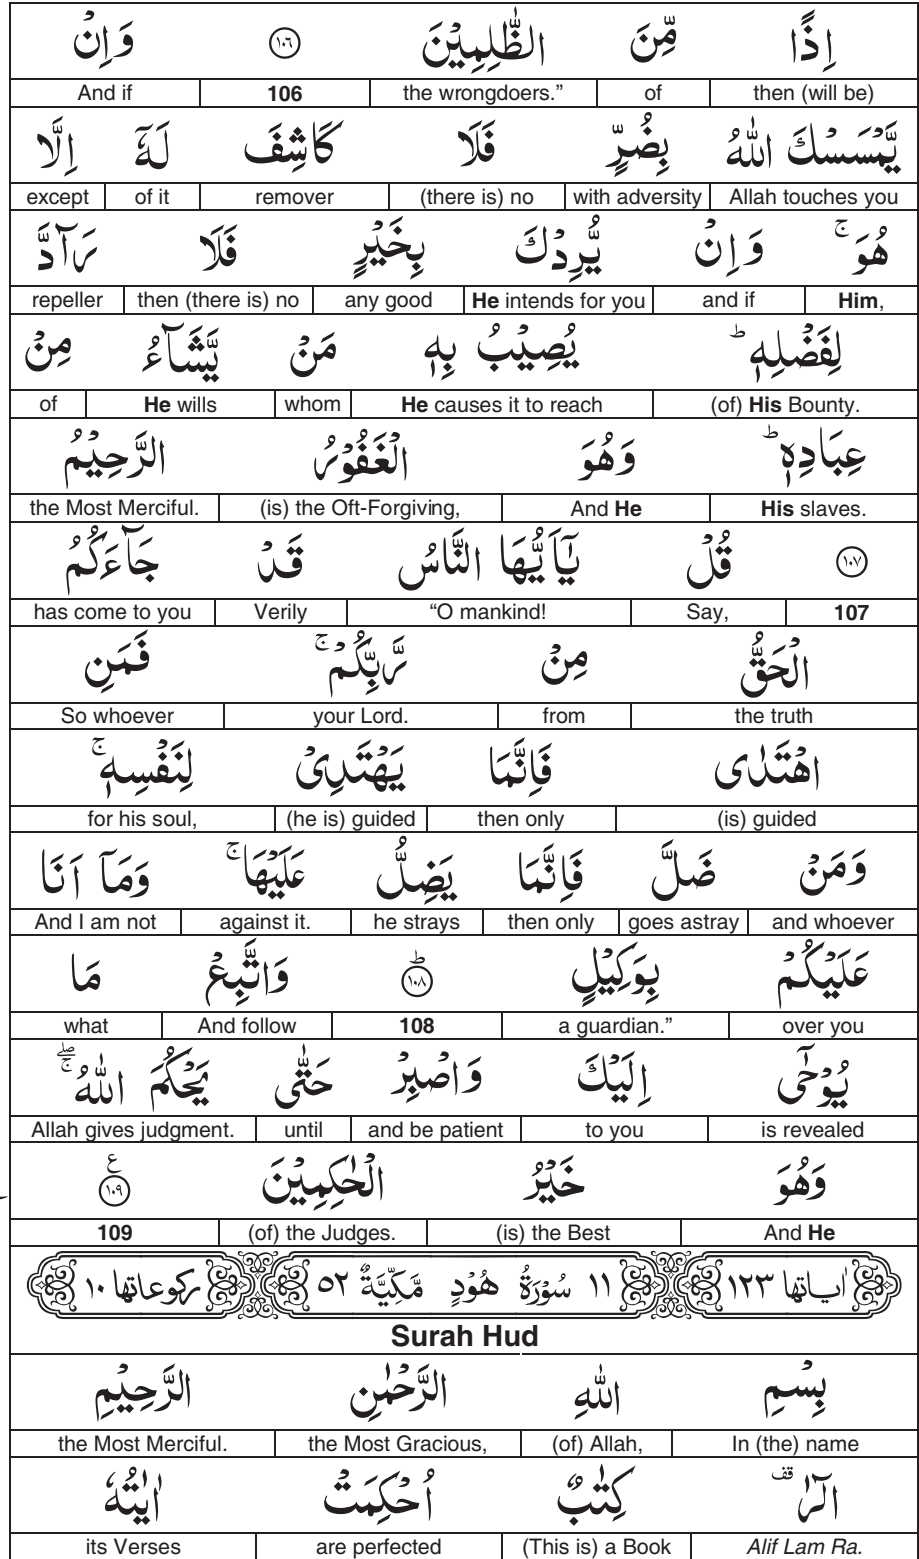 اِذًا مِّنَ الظّٰلِمِيْنَ ١٠٦ وَاِنْ
then (will be) of the wrongdoers.” 106 And if
يَّمْسَسْكَ اللّٰهُ بِضُرٍّ فَلَا كَاشِفَ لَهٗۤ اِلَّا
Allah touches you with adversity (there is) no remover of it except
هُوَ ۚ وَاِنْ يُّرِدْكَ بِخَيْرٍ فَلَا رَآدَّ
Him, and if He intends for you any good then (there is) no repeller
لِفَضْلِهٖ ؕ يُصِيْبُ بِهٖ مَنْ يَّشَآءُ مِنْ
(of) His Bounty. He causes it to reach whom He wills of
عِبَادِهٖ ؕ وَهُوَ الْغَفُوْرُ الرَّحِيْمُ
His slaves. And He (is) the Oft-Forgiving, the Most Merciful.
١٠٧ قُلْ يٰۤاَيُّهَا النَّاسُ قَدْ جَآءَكُمُ
107 Say, “O mankind! Verily has come to you
الْحَقُّ مِنْ رَّبِّكُمْ ۚ فَمَنِ
the truth from your Lord. So whoever
اهْتَدٰى فَاِنَّمَا يَهْتَدِىْ لِنَفْسِهٖ ۚ
(is) guided then only (he is) guided for his soul,
وَمَنْ ضَلَّ فَاِنَّمَا يَضِلُّ عَلَيْهَا ۚ وَمَاۤ اَنَا
and whoever goes astray then only he strays against it. And I am not
عَلَيْكُمْ بِوَكِيْلٍ ؕ ١٠٨ وَاتَّبِعْ مَا
over you a guardian.” 108 And follow what
يُوْحٰۤى اِلَيْكَ وَاصْبِرْ حَتّٰى يَحْكُمَ اللّٰهُ ۖۚ
is revealed to you and be patient until Allah gives judgment.
وَهُوَ خَيْرُ الْحٰكِمِيْنَ ١٠٩ ع
And He (is) the Best (of) the Judges. 109
اٰياتها ١٢٣ ١١ سُوْرَةُ هُوْدٍ مَّكِّيَّةٌ ٥٢ ركوعاتها ١٠
Surah Hud
بِسْمِ اللّٰهِ الرَّحْمٰنِ الرَّحِيْمِ
In (the) name (of) Allah, the Most Gracious, the Most Merciful.
الٓرٰ قف كِتٰبٌ اُحْكِمَتْ اٰيٰتُهٗ
Alif Lam Ra. (This is) a Book are perfected its Verses